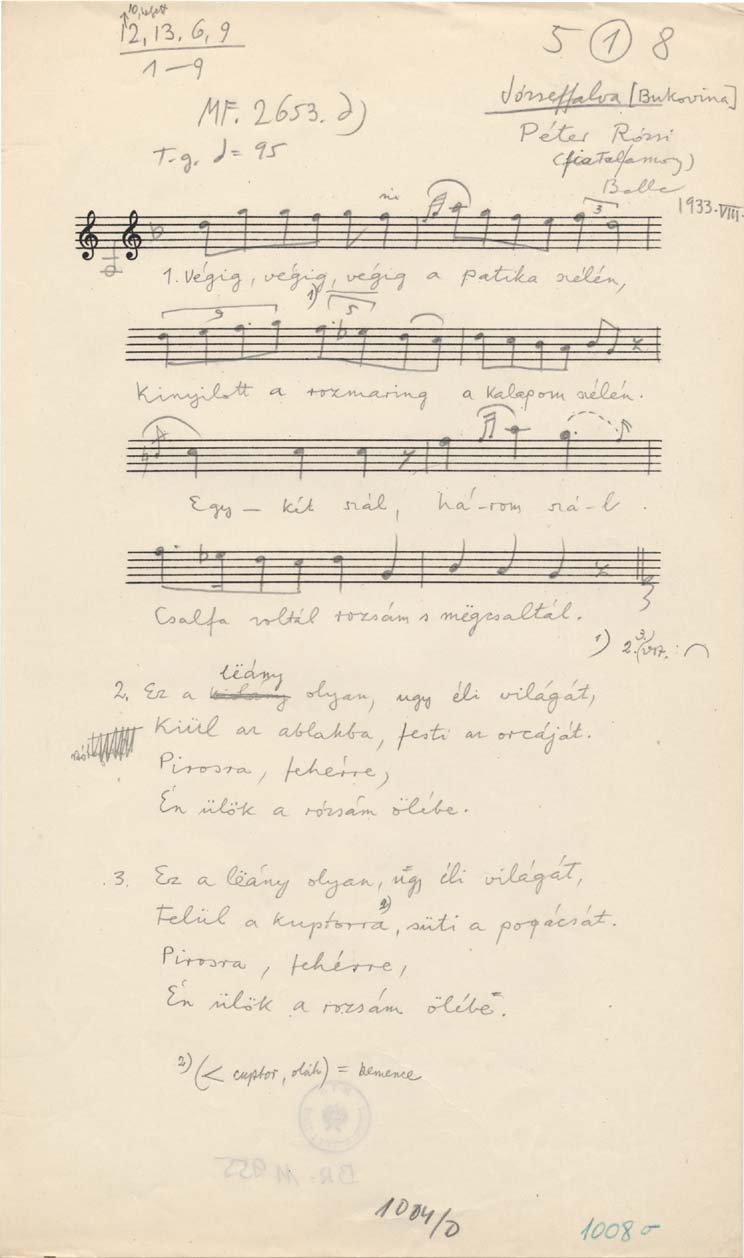 12, 13, 6, 9
1–9
5 ① 8
Józseffalva [Bukovina]
MF. 2653. d)
Péter Rózsi
(fiatalasszony)
T-g. ♩= 95
Balla
1933. VIII.
3
1. Végig, végig, végig a patika szélén,
1)
5
Kinyilott a rozmaring a kalapom szélén.
Egy – két szál, há-rom szá-l.
Csalfa voltál rozsám s mëgcsaltál.
1) 2. 3. vsz. :
lëány
2. Ez a olyan, ugy éli világát,
Kiül az ablakba, festi az orcáját.
Pirosra, fehérre,
Én ülök a rózsám ölébe.
3. Ez a lëány olyan, úgy éli világát,
Felül a kuptorra 2), süti a pogácsát.
Pirosra, fehérre,
Én ülök a rozsám ölébe.
2) (< cuptor, oláh) = kemence
BR. 11 955
1004/0
1008 σ